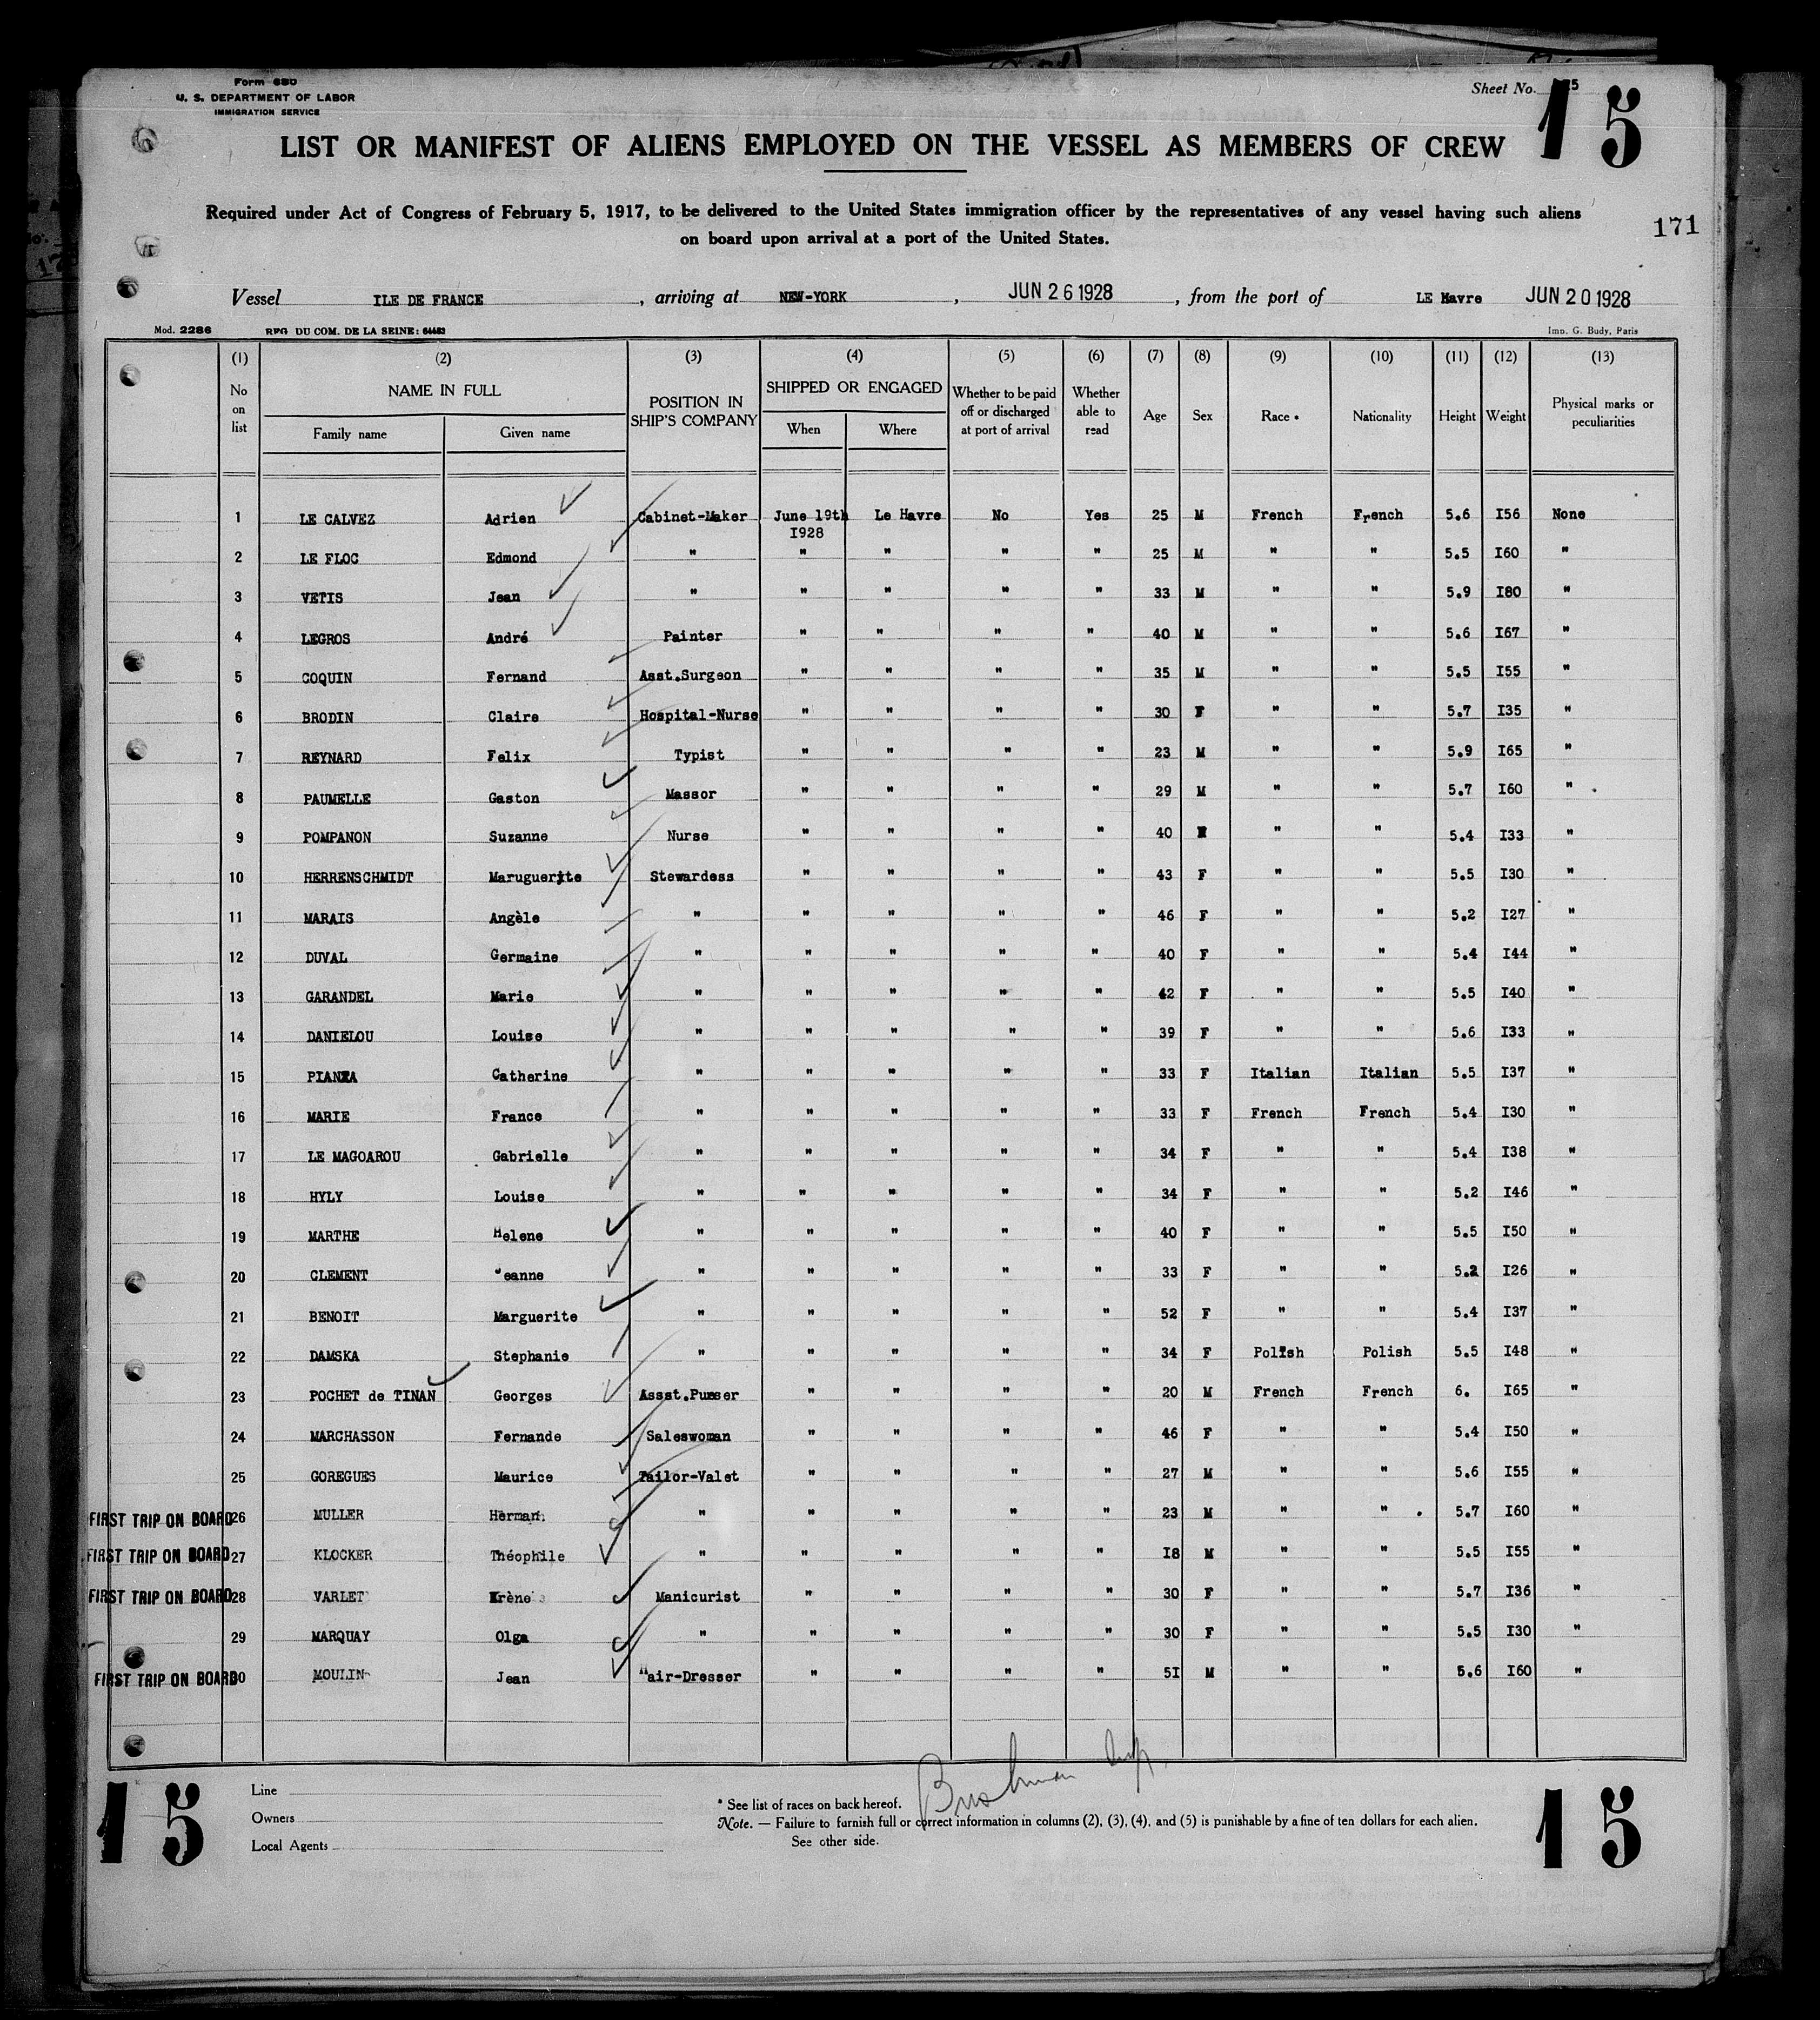 Form 680
U. S. DEPARTMENT OF LABOR
IMMIGRATION SERVICE
Sheet No. 15
15
LIST OR MANIFEST OF ALIENS EMPLOYED ON THE VESSEL AS MEMBERS OF CREW
Required under Act of Congress of February 5, 1917, to be delivered to the United States immigration officer by the representatives of any vessel having such aliens
on board upon arrival at a port of the United States.
171
Vessel ILE DE FRANCE, arriving at NEW-YORK, JUN 26 1928, from the port of LE Havre JUN 20 1928
Mod. 2286 REG. DU COM. DE LA SEINE: 64463 Imp. G. Budy, Paris
(1) (2) (3) (4) (5) (6) (7) (8) (9) (10) (11) (12) (13)
No on list NAME IN FULL Family name Given name POSITION IN SHIP'S COMPANY SHIPPED OR ENGAGED When Where Whether to be paid off or discharged at port of arrival Whether able to read Age Sex Race * Nationality Height Weight Physical marks or peculiarities
1 LE CALVEZ Adrien Cabinet-Maker June 19th 1928 Le Havre No Yes 25 M French French 5.6 I56 None
2 LE FLOC Edmond " " " " " 25 M " " 5.5 I60 "
3 VETIS Jean " " " " " 33 M " " 5.9 I80 "
4 LEGROS André Painter " " " " 40 M " " 5.6 I67 "
5 COQUIN Fernand Asst.Surgeon " " " " 35 M " " 5.5 I55 "
6 BRODIN Claire Hospital-Nurse " " " " 30 F " " 5.7 I35 "
7 REYNARD Felix Typist " " " " 23 M " " 5.9 I65 "
8 PAUMELLE Gaston Massor " " " " 29 M " " 5.7 I60 "
9 POMPANON Suzanne Nurse " " " " 40 " " 5.4 I33 "
10 HERRENSCHMIDT Maruguerite Stewardess " " " " 43 F " " 5.5 I30 "
11 MARAIS Angèle " " " " " 46 F " " 5.2 I27 "
12 DUVAL Germaine " " " " " 40 F " " 5.4 I44 "
13 GARANDEL Marie " " " " " 42 F " " 5.5 I40 "
14 DANIELOU Louise " " " " " 39 F " " 5.6 I33 "
15 PIANZA Catherine " " " " " 33 F Italian Italian 5.5 I37 "
16 MARIE France " " " " " 33 F French French 5.4 I30 "
17 LE MAGOAROU Gabrielle " " " " " 34 F " " 5.4 I38 "
18 HYLY Louise " " " " " 34 F " " 5.2 I46 "
19 MARTHE Helene " " " " " 40 F " " 5.5 I50 "
20 CLEMENT Jeanne " " " " " 33 F " " 5.2 I26 "
21 BENOIT Marguerite " " " " " 52 F " " 5.4 I37 "
22 DAMSKA Stephanie " " " " " 34 F Polish Polish 5.5 I48 "
23 POCHET de TINAN Georges Assst.Purser " " " " 20 M French French 6. I65 "
24 MARCHASSON Fernande Saleswoman " " " " 46 F " " 5.4 I50 "
25 GOREGUES Maurice Tailor-Valet " " " " 27 M " " 5.6 I55 "
FIRST TRIP ON BOARD 26 MULLER Herman " " " " " 23 M " " 5.7 I60 "
FIRST TRIP ON BOARD 27 KLOCKER Théophile " " " " " I8 M " " 5.5 I55 "
FIRST TRIP ON BOARD 28 VARLET Irène Manicurist " " " " 30 F " " 5.7 I36 "
29 MARQUAY Olga " " " " " 30 F " " 5.5 I30 "
FIRST TRIP ON BOARD 30 MOULIN Jean Hair-Dresser " " " " 5I M " " 5.6 I60 "
15
Line
Owners
Local Agents
* See list of races on back hereof.
Note. — Failure to furnish full or correct information in columns (2), (3), (4), and (5) is punishable by a fine of ten dollars for each alien.
See other side.
15